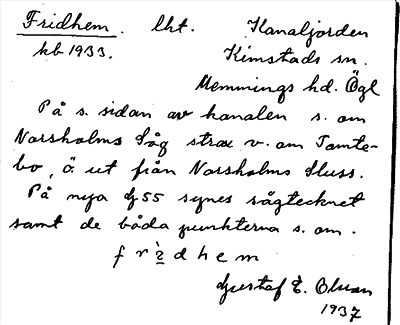 Fridhem. lht. Kanaljorden
kb 1933. Kimstads sn.
Memmings hd. Ögl
På s. sidan av kanalen s. om
Norsholms Såg strax v. om Tomte-
bo, ö. ut från Norsholms Sluss.
På nya gj 55 synes sågtecknet
samt de båda punkterna s. om.
f r ì d h e m
Gustaf E. Olsson
1937